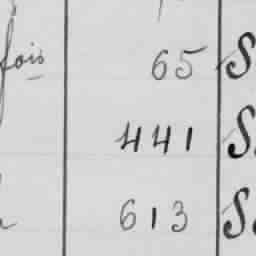 fois 65 S
441 S
613 S